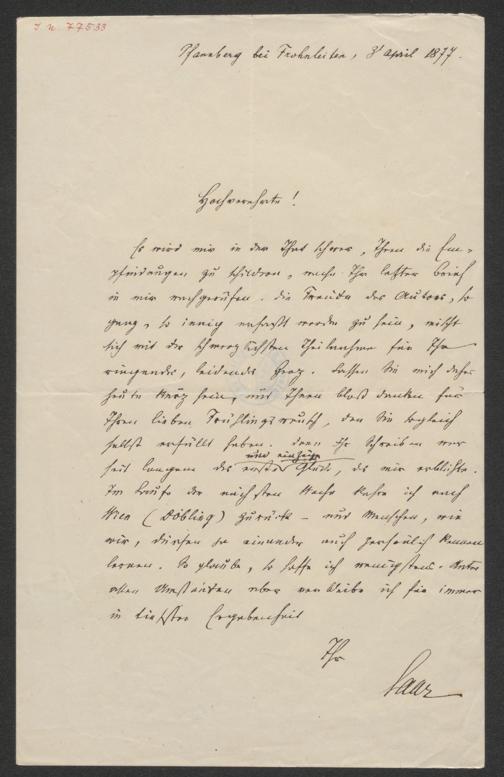 I. N. 77533
Pfannberg bei Frohnleiten, 3 April 1877.
Hochverehrte!
Es wird mir in der That schwer, Ihnen die Em-
pfindungen zu schildern, welche Ihr letzter Brief
in mir wachgerufen. Die Freude des Autors, so
ganz, so innig erfasst worden zu sein, mischt
sich mit der schmerzlichsten Theilnahme für Ihr
ringendes, leidendes Herz. Lassen Sie mich daher
heute kurz sein, und Ihnen bloß danken für
Ihren lieben Frühlingswunsch, den Sie sogleich
selbst erfüllt haben. Denn Ihr Schreiben war
und einzige
seit langem das erste Glück, das mir erblühte.
Im Laufe der nächsten Woche kehre ich nach
Wien (Döbling) zurück – und Menschen, wie
wir, dürfen ja einander auch persönlich kennen
lernen. So glaube, so hoffe ich wenigstens. Unter
allen Umständen aber verbleibe ich für immer
in tiefster Ergebenheit
Ihr
Saar